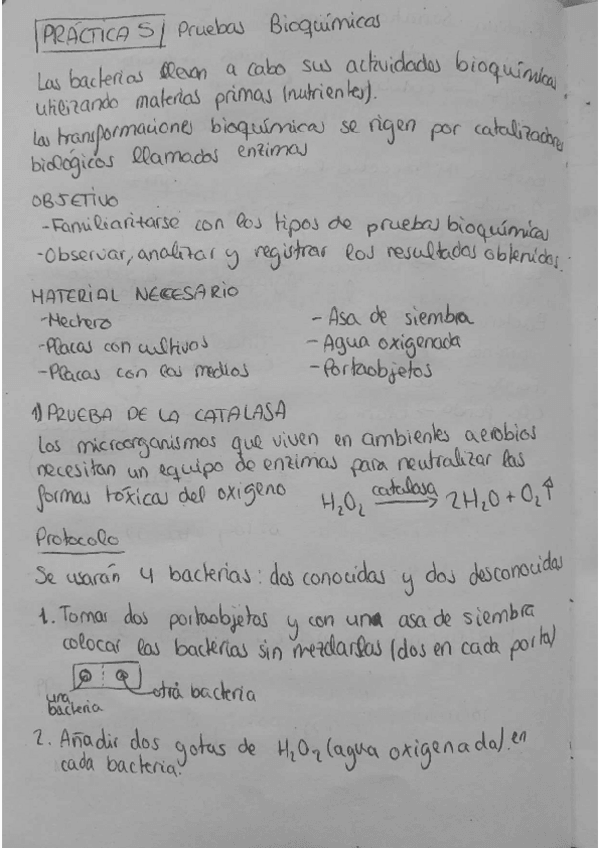 PRÁCTICA 5 Pruebas Bioquímicas
Las bacterias llevan a cabo sus actividades bioquímicas
utilizando materias primas (nutrientes).
Las transformaciones bioquímicas se rigen por catalizadores
biológicos llamados enzimas
OBJETIVO
-Familiaritarse con los tipos de pruebas bioquímicas
-Observar, analizar y registrar los resultados obtenidos.
MATERIAL NECESARIO
-Mechero
-Placas con cultivos
-Placas con los medios
- Asa de siembra
- Agua oxigenada
-Portaobjetos
1) PRUEBA DE LA CATALASA
Los microorganismos que viven en ambientes aerobios
necesitan un equipo de enzimas para neutralizar las
formas tóxicas del oxígeno H₂O₂ catalasa→ 2H₂O + O₂↑
Protocolo
Se usarán 4 bacterias: dos conocidas y dos desconocidas
1. Tomar dos portaobjetos y con una asa de siembra
colocar las bacterias sin mezclarlas (dos en cada porta)
una
bacteria
otra bacteria
2. Añadir dos gotas de H₂O₂ (agua oxigenada) en
cada bacteria.